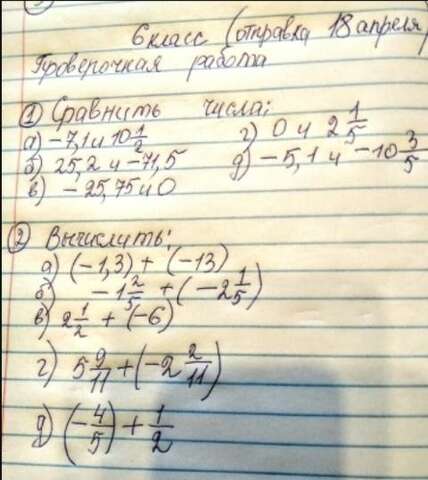 6 класс (отправка 18 апреля)
Проверочная работа
① Сравнить числа:
а) -7,1 и 10 1/2
г) 0 и 2 1/5
б) 25,2 и -71,5
д) -5,1 и -10 3/5
в) -25,75 и 0
② Вычислить:
а) (-1,3) + (-13)
б) -1 2/5 + (-2 1/5)
в) 2 1/2 + (-6)
г) 5 9/11 + (-2 2/11)
д) (-4/5) + 1/2